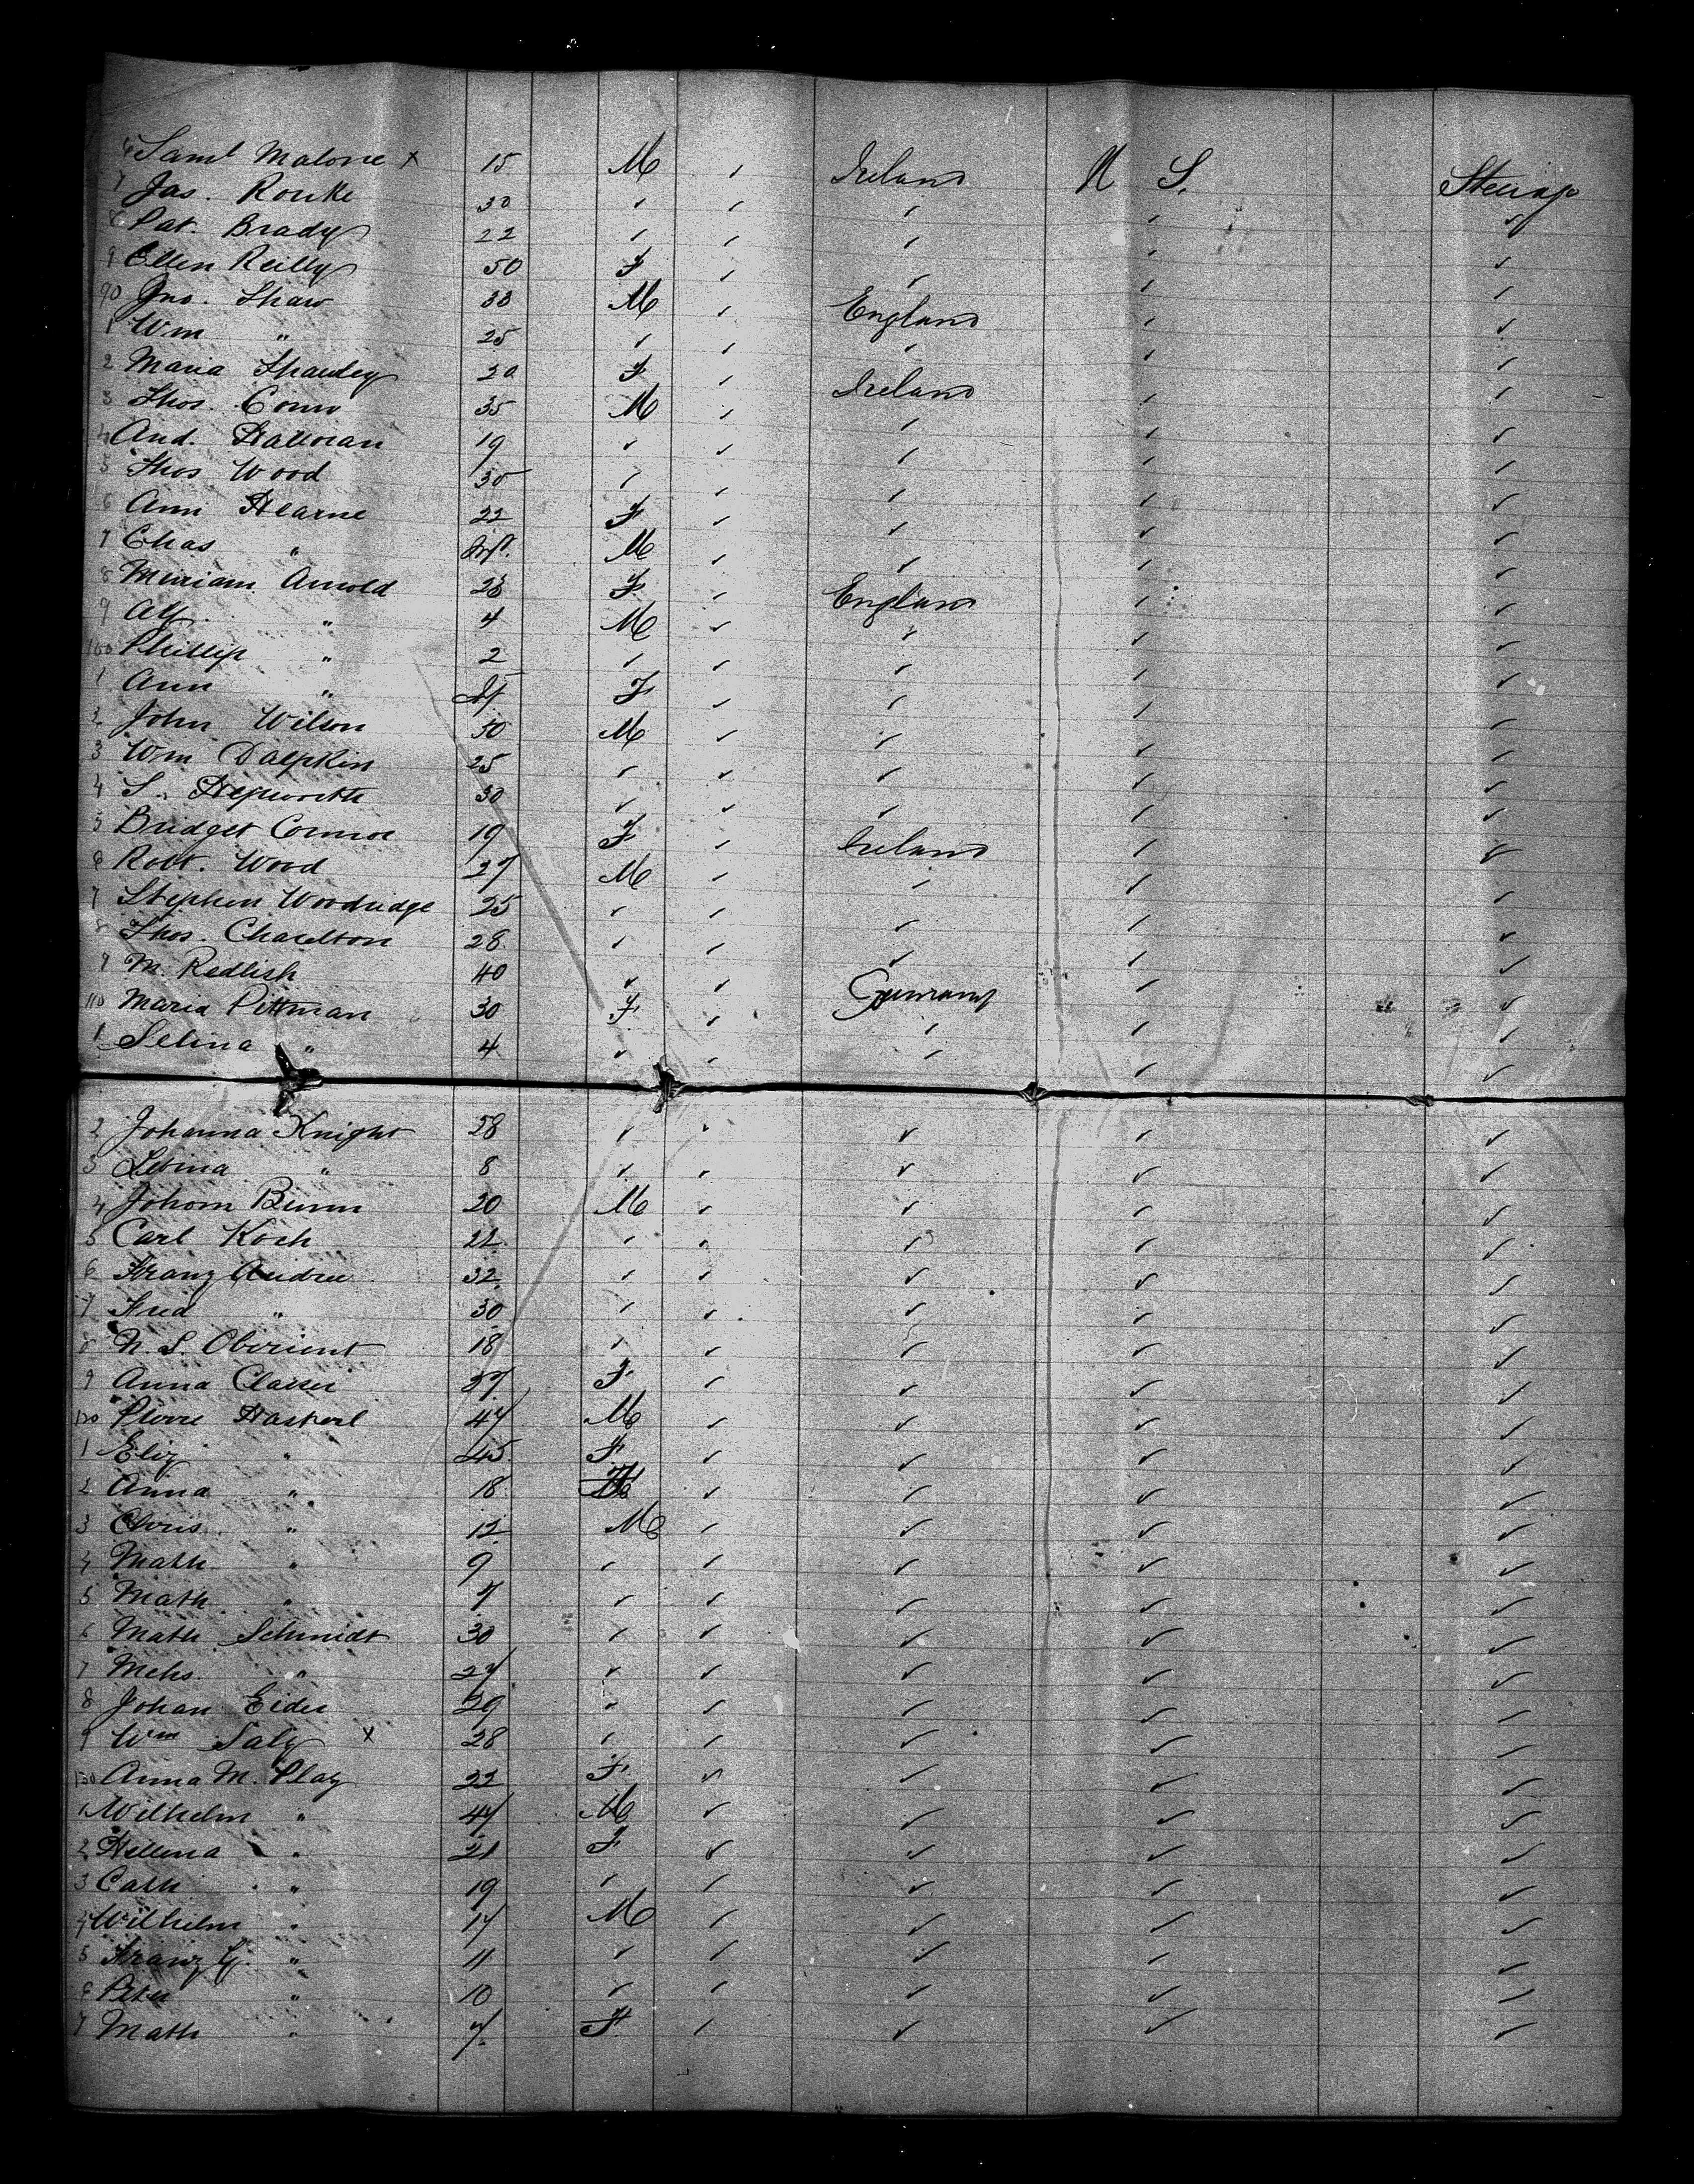 6 Saml Malone x 15 M ✓ Ireland U S. Steerage
7 Jas. Rourke 30 ✓ ✓ ✓ ✓ ✓
8 Pat. Brady 22 ✓ ✓ ✓ ✓ ✓
9 Ellen Reilly 50 F ✓ ✓ ✓ ✓
90 Jno. Shaw 33 M ✓ England ✓ ✓
1 Wm " 25 ✓ ✓ ✓ ✓ ✓
2 Maria 20 F ✓ Ireland ✓ ✓
3 Thos. 35 M ✓ ✓ ✓ ✓
4 And. Halloran 19 ✓ ✓ ✓ ✓ ✓
5 Thos Wood 30 ✓ ✓ ✓ ✓ ✓
6 Ann Hearne 22 F ✓ ✓ ✓ ✓
7 Chas " Inft. M ✓ ✓ ✓ ✓
8 Miriam Arnold 28 F ✓ England ✓ ✓
9 Alf. " 4 M ✓ ✓ ✓ ✓
100 Phillip " 2 ✓ ✓ ✓ ✓ ✓
1 Ann " Inft F ✓ ✓ ✓ ✓
2 John Wilson 50 M ✓ ✓ ✓ ✓
3 Wm 25 ✓ ✓ ✓ ✓ ✓
4 S. Hepworth 30 ✓ ✓ ✓ ✓ ✓
5 Bridget Connor 19 F ✓ Ireland ✓ ✓
6 Robt. Wood 27 M ✓ ✓ ✓ ✓
7 Stephen Woodridge 25 ✓ ✓ ✓ ✓ ✓
8 Thos. Charlton 28 ✓ ✓ ✓ ✓ ✓
9 M. Redlish 40 ✓ ✓ Germany ✓ ✓
110 Maria Pittman 30 F ✓ ✓ ✓ ✓
1 Selina " 4 ✓ ✓ ✓ ✓ ✓
2 Johanna Knight 28 ✓ ✓ ✓ ✓ ✓
3 " 8 ✓ ✓ ✓ ✓ ✓
4 Johom 20 M ✓ ✓ ✓ ✓
5 Carl Koch 22 ✓ ✓ ✓ ✓ ✓
6 Franz Andree 32 ✓ ✓ ✓ ✓ ✓
7 Fred " 30 ✓ ✓ ✓ ✓ ✓
8 N. S. 18 ✓ ✓ ✓ ✓ ✓
9 Anna 27 F ✓ ✓ ✓ ✓
120 Pierre 47 M ✓ ✓ ✓ ✓
1 Eliz " 45 F ✓ ✓ ✓ ✓
2 Anna " 18 F ✓ ✓ ✓ ✓
3 Chris. " 12 M ✓ ✓ ✓ ✓
4 Math " 9 ✓ ✓ ✓ ✓ ✓
5 Math " 7 ✓ ✓ ✓ ✓ ✓
6 Math Schmidt 30 ✓ ✓ ✓ ✓ ✓
7 Mchs. " 27 ✓ ✓ ✓ ✓ ✓
8 Johan Eider 29 ✓ ✓ ✓ ✓ ✓
9 Wm Salz x 28 ✓ ✓ ✓ ✓ ✓
130 Anna M. Plaz 22 F ✓ ✓ ✓ ✓
1 Wilhelm " 47 M ✓ ✓ ✓ ✓
2 Hellena " 21 F ✓ ✓ ✓ ✓
3 Cath " 19 ✓ ✓ ✓ ✓ ✓
4 Wilhelm " 17 M ✓ ✓ ✓ ✓
5 Franz " 11 ✓ ✓ ✓ ✓ ✓
6 Peter " 10 ✓ ✓ ✓ ✓ ✓
7 Math " 7 F ✓ ✓ ✓ ✓